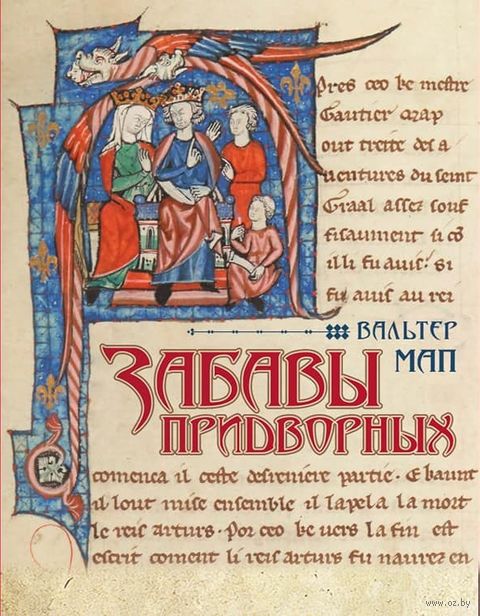 Pres ceo ke mestre
Gautier map
out treite des a
uentures du seint
Graal assez souf
fisaument si cō
il li fu auis. si
fu auis au rei
ВАЛЬТЕР
МАП
ЗАБАВЫ
ПРИДВОРНЫХ
comenca il ceste desreniere partie. E kaunt
il lout mise ensemble il lapela la mort
le reis arturs. Por ceo ke uers la fin est
escrit coment li reis arturs fu naurez en
www.oz.by